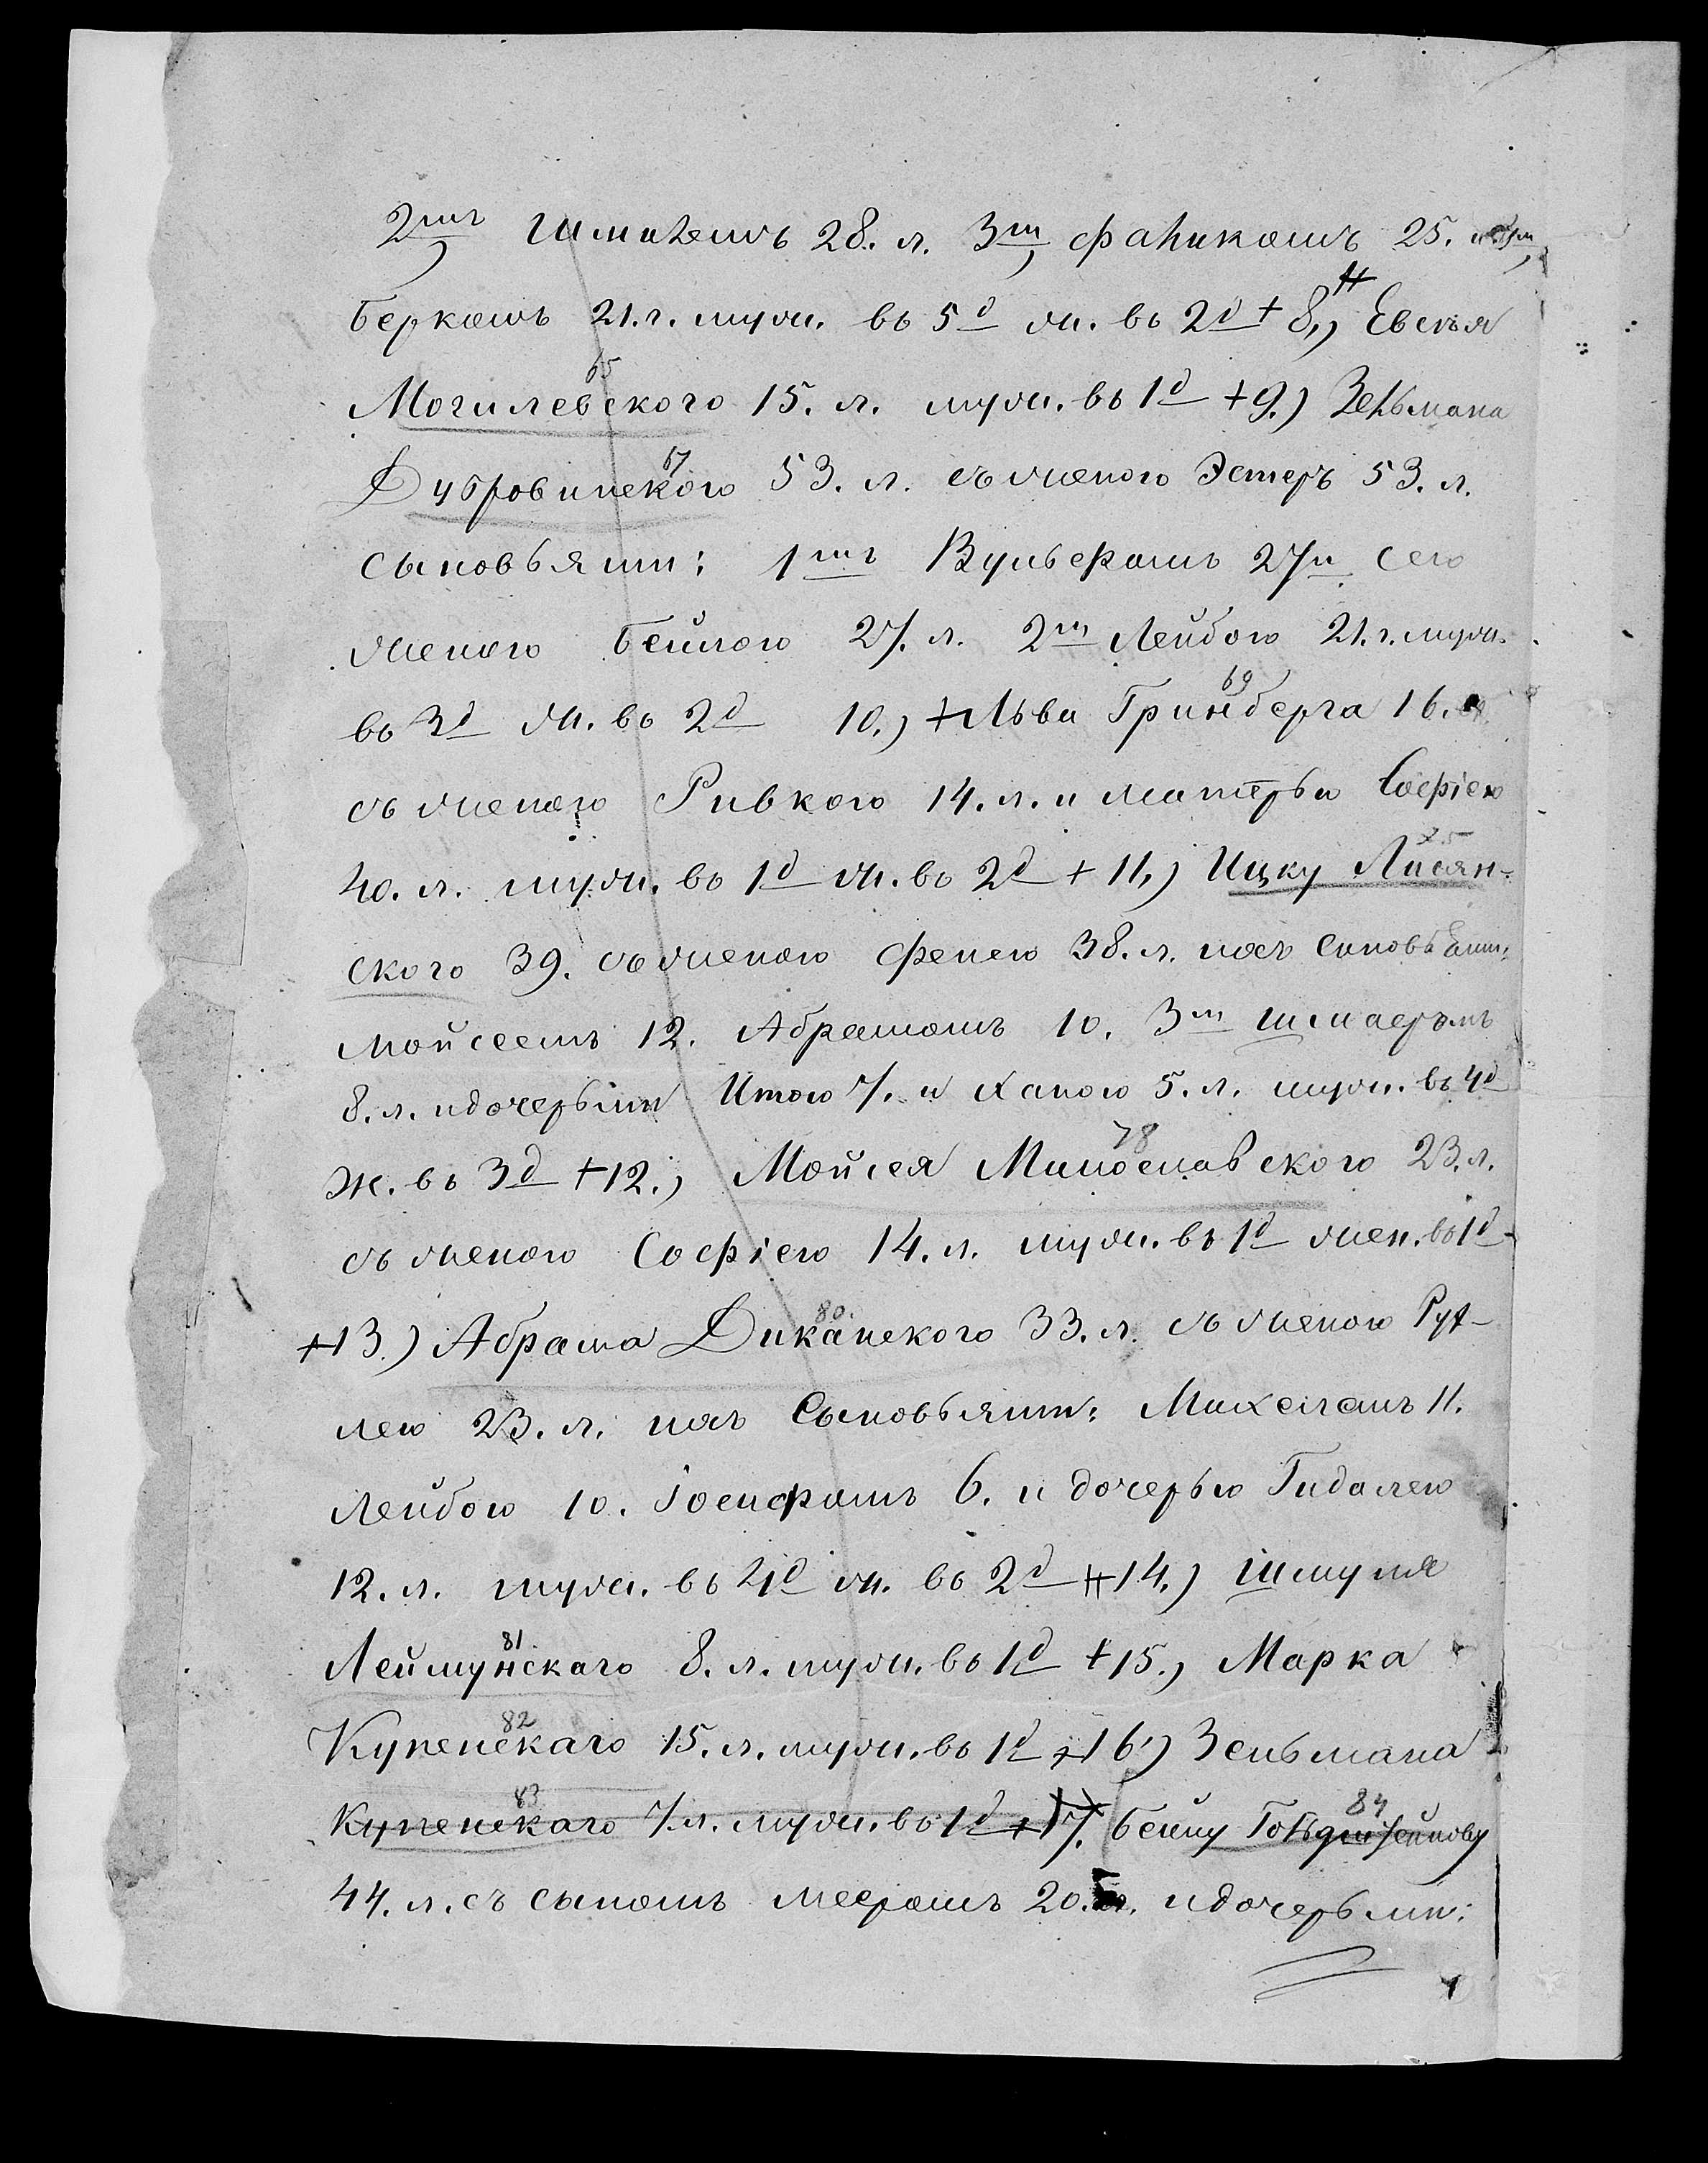 2мъ Шмилемъ 28. л. 3м Файикомъ 25. и 4м
Беркомъ 21. г. муж. въ 5д ж. въ 2д + 8.) Евсѣя
Могилевского 65 15. л. муж. въ 1д + 9.) Зельмана
Дубровинского 67 53. л. съ женою Эстеръ 53. л.
сыновьями: 1мъ Вульфомъ 27 и его
женою Бейлою 27. л. 2м Лейбою 21. г. муж.
въ 3д ж. въ 2д 10.) + Льва Гринберга 69 16. л.
съ женою Ривкою 14. л. и матерью Софіею
40. л. муж. въ 1д ж. въ 2д + 11.) Ицку Лисян- 75
ского 39. съ женою Фенею 38. л. и съ сыновьями:
Мойсеемъ 12. Абрамомъ 10. 3м Шмаеромъ
8. л. и дочерьми Итою 7. и Ханою 5. л. муж. въ 4д
ж. въ 3д + 12.) Мойсея Милославского 78 23. л.
съ женою Софіею 14. л. муж. въ 1д жен. въ 1д
+ 13.) Абрама Диканского 80. 33. л. съ женою Рух-
лею 23. л. и съ сыновьями: Михелемъ 11.
Лейбою 10. Іосифомъ 6. и дочерью Гидалею
12. л. муж. въ 4д ж. въ 2д + 14.) Шмуля
Леймунскаго 81 8. л. муж. въ 1д + 15.) Марка
Купенскаго 82 15. л. муж. въ 1д + 16.) Зельмана
Купенскаго 83 7 л. муж. въ 1д + 17. Бейлу Гольдштейнову 84
44. л. съ сыномъ Мееромъ 20. и дочерьми: